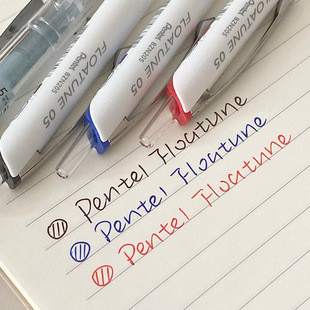 FLOATUNE 05
Pentel BZN205
FLOATUNE 05
Pentel BZN205
FLOATUNE 05
Pentel BZN205
Pentel Floatune
Pentel Floatune
Pentel Floatune